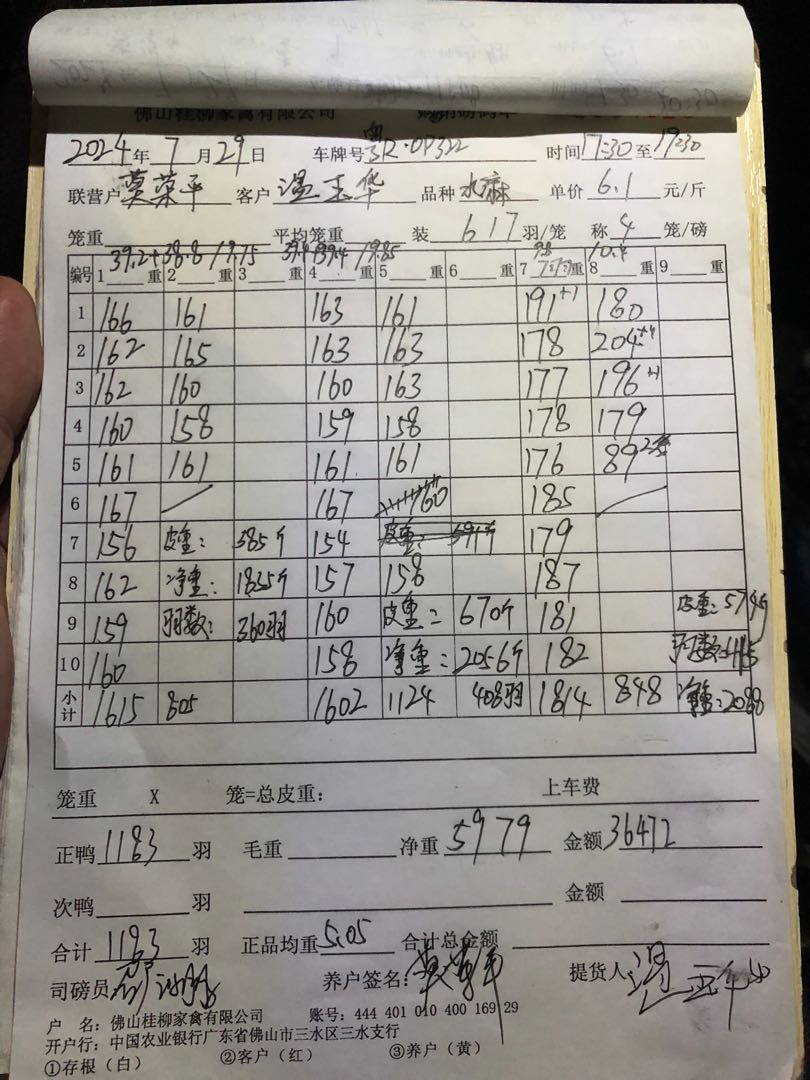 佛山桂柳家禽有限公司 购销磅码单
2024年 7 月 29 日 车牌号 粤R·0P322 时间 17:30 至 19:30
联营户 莫荣平 客户 温玉华 品种 水麻 单价 6.1 元/斤
笼重 平均笼重 装 6 17 羽/笼 称 4 笼/磅
39.2+38.8 19.75 39.4+39.4 19.85 10.4
编号 1 重 2 重 3 重 4 重 5 重 6 7 重 8 重 9 重
1 166 161 163 161 191+1 180
2 162 165 163 163 178 204+4
3 162 160 160 163 177 196+1
4 160 158 159 158 178 179
5 161 161 161 161 176 89 2笼
6 167 167 160 185
7 156 皮重: 585斤 154 皮重: 591斤 179
8 162 净重: 1835斤 157 158 187
9 159 羽数: 360羽 160 皮重= 670斤 181 皮重: 574斤
10 160 158 净重: 2056斤 182 羽数=415
小计 1615 805 1602 1124 408羽 1814 848 净重:2088
笼重 X 笼=总皮重: 上车费
正鸭 1183 羽 毛重 净重 5979 金额 36472
次鸭 羽 金额
合计 1183 羽 正品均重 5.05 合计总金额
司磅员 养户签名: 莫荣平 提货人: 温玉华
户 名: 佛山桂柳家禽有限公司 账号: 444 401 010 400 169 29
开户行: 中国农业银行广东省佛山市三水区三水支行
①存根(白) ②客户(红) ③养户(黄)